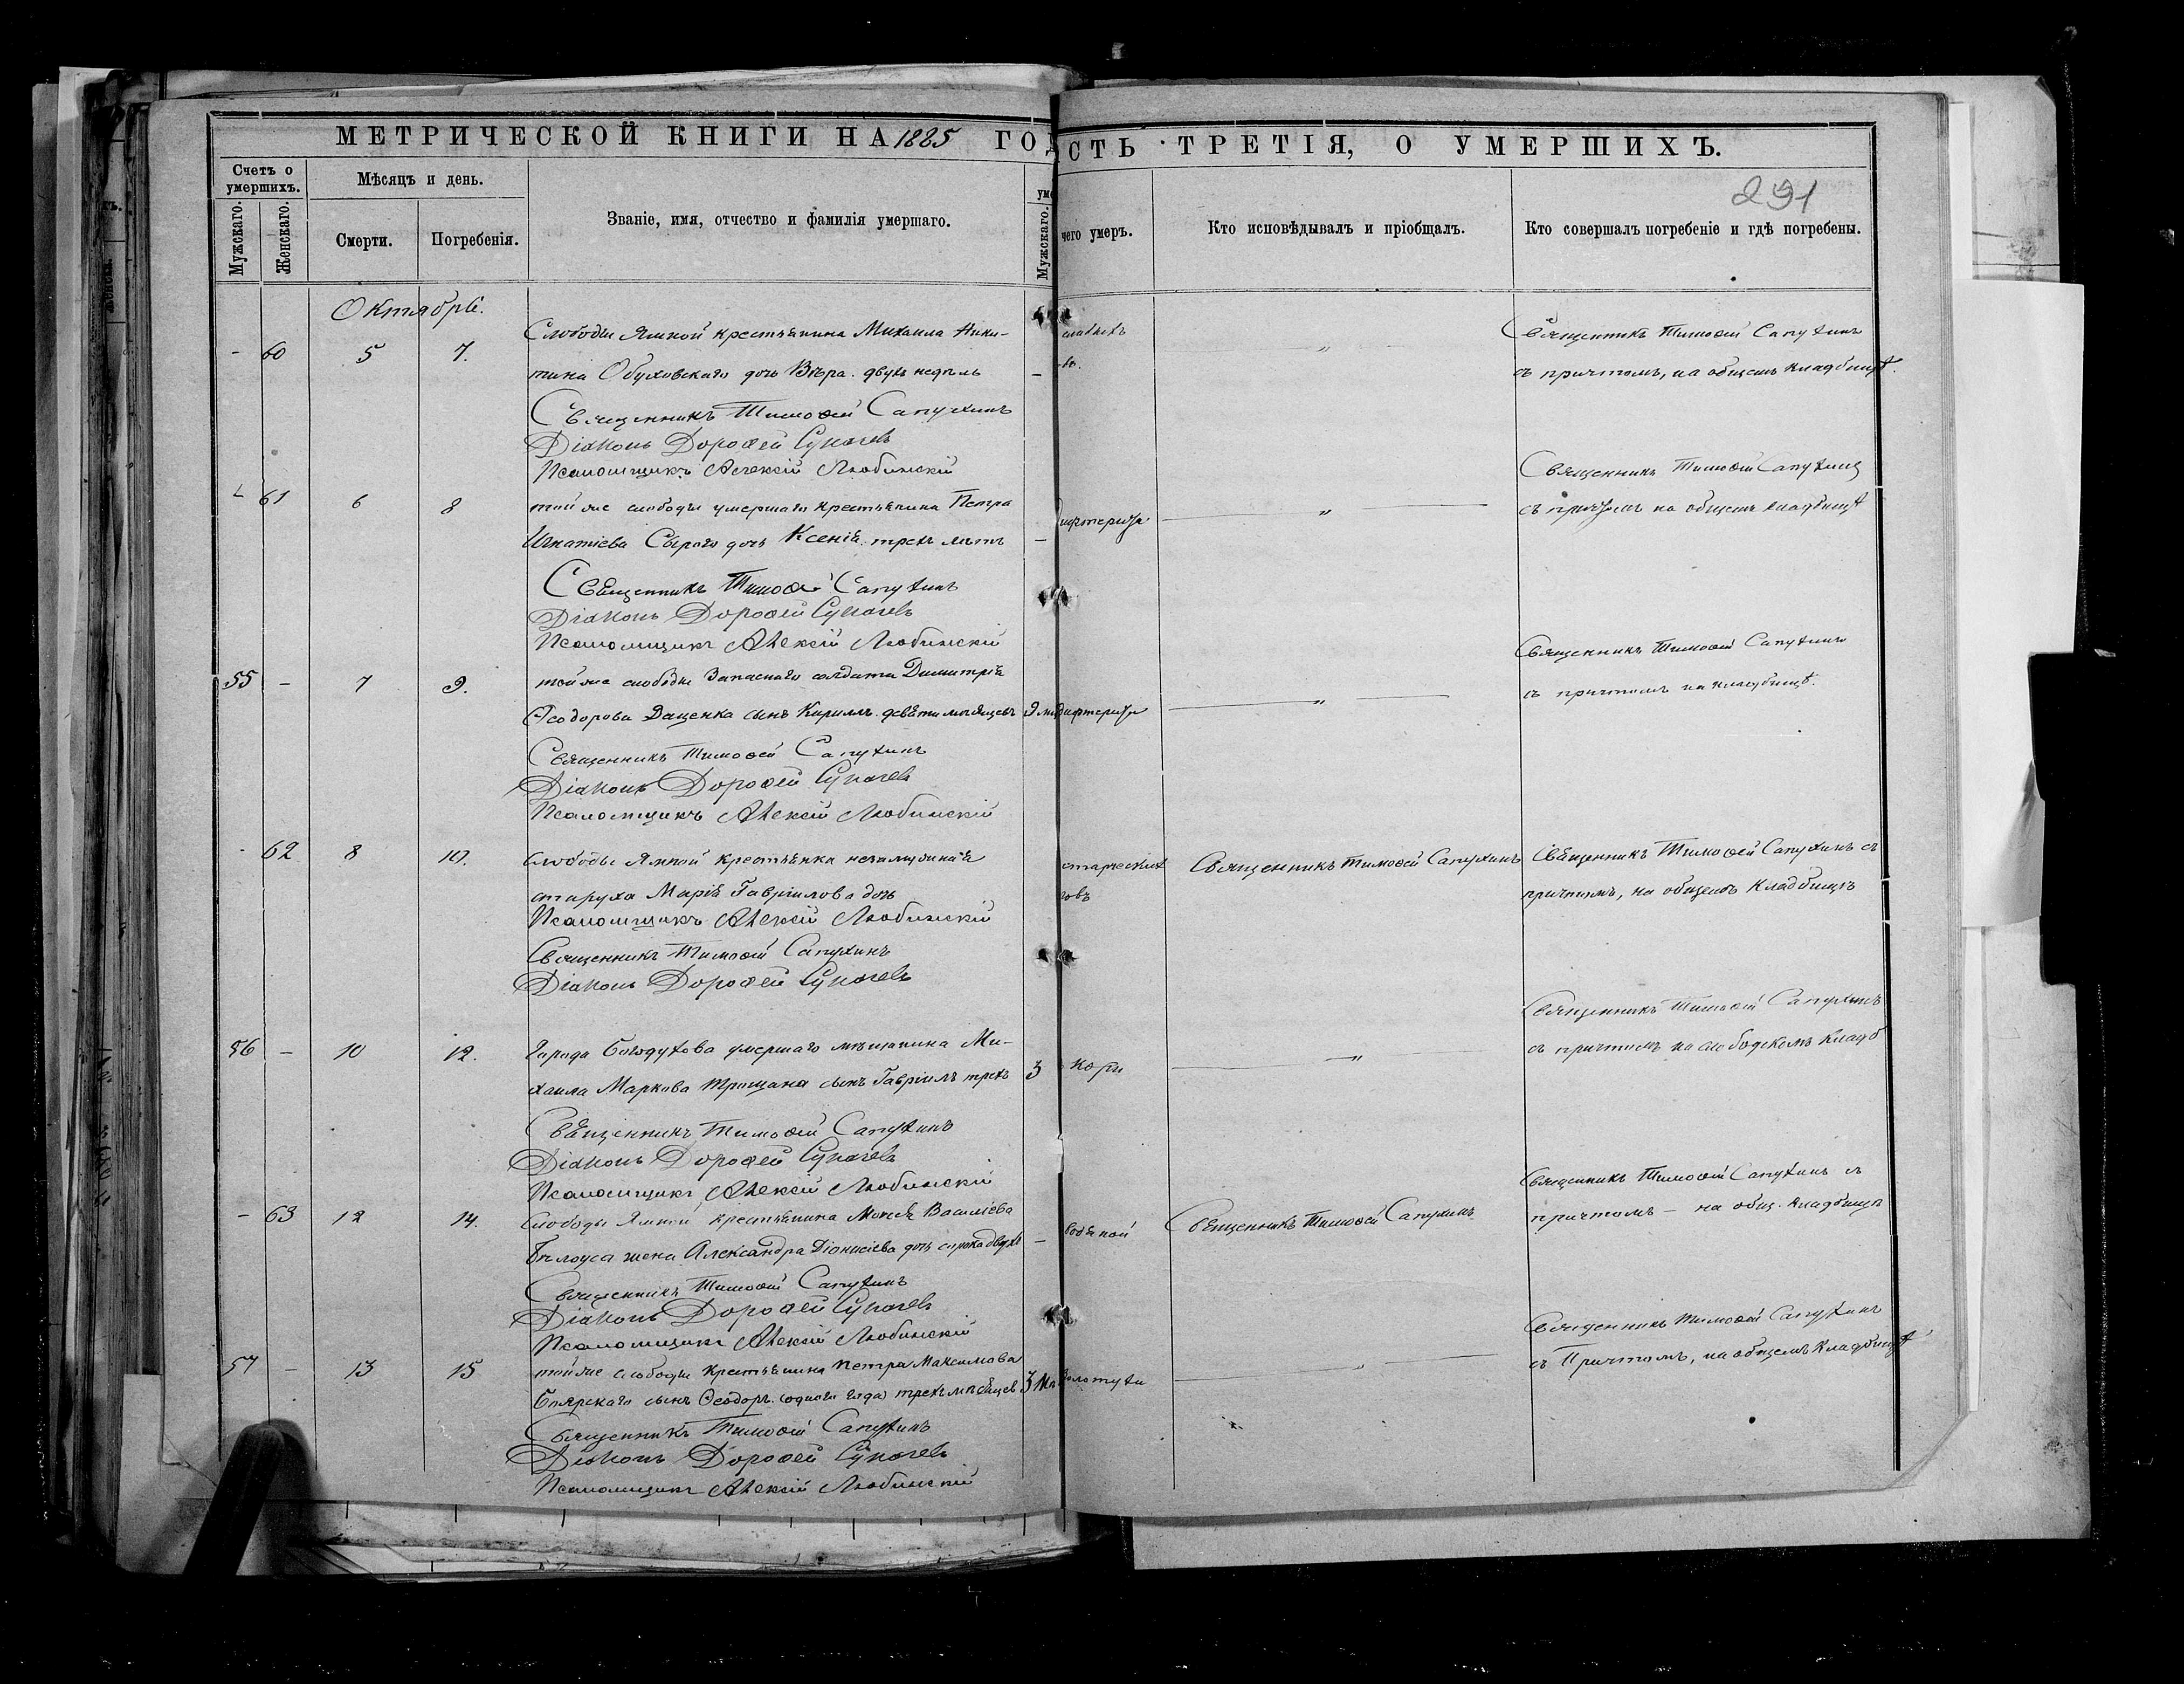 МЕТРИЧЕСКОЙ КНИГИ НА 1885 ГОД
СТЬ ТРЕТІЯ, О УМЕРШИХЪ.
291
Счетъ о умершихъ.
Мужскаго.
Женскаго.
Мѣсяцъ и день.
Смерти.
Погребенія.
Званіе, имя, отчество и фамилія умершаго.
Мужскаго.
чего умеръ.
Кто исповѣдывалъ и пріобщалъ.
Кто совершалъ погребеніе и гдѣ погребены.
Октябрь.
- 60 5 7.
Слободы Ямной крестьянина Михаила Ники-
тина Обуховскаго дочь Вѣра. двухъ недѣль
-
Священникъ Тимоѳей Сапухинъ
съ причтомъ, на общемъ кладбищѣ.
Священникъ Тимоѳей Сапухинъ
Діаконъ Дороѳей Сукачевъ
Псаломщикъ Алексій Любинскій
- 61 6 8
той же слободы умершаго крестьянина Петра
Игнатіева Сѣраго дочь Ксенія. трехъ лѣтъ
-
дифтерита
Священникъ Тимоѳей Сапухинъ
съ причтомъ на общемъ кладбищѣ
Священникъ Тимоѳей Сапухинъ
Діаконъ Дороѳей Сукачевъ
Псаломщикъ Алексій Любинскій
55 - 7 9.
той же слободы Запаснаго солдата Димитрія
Ѳеодорова Даценка сынъ Кириллъ. девяти мѣсяцевъ
дифтерита
Священникъ Тимоѳей Сапухинъ
съ причтомъ на кладбищѣ.
Священникъ Тимоѳей Сапухинъ
Діаконъ Дороѳей Сукачевъ
Псаломщикъ Алексій Любинскій
- 62 8 10.
Слободы Ямной крестьянка незамужняя
старуха Марія Гавріилова дочь
старческих
Священникъ Тимоѳей Сапухинъ
Священникъ Тимоѳей Сапухинъ съ
причтомъ, на общемъ кладбищѣ
Псаломщикъ Алексій Любинскій
Священникъ Тимоѳей Сапухинъ
Діаконъ Дороѳей Сукачевъ
56 - 10 12.
Города Богодухова умершаго мѣщанина Ми-
хаила Маркова Трощана сынъ Гавріилъ трехъ
3
кори
Священникъ Тимоѳей Сапухинъ
съ причтомъ на слободскомъ кладб
Священникъ Тимоѳей Сапухинъ
Діаконъ Дороѳей Сукачевъ
Псаломщикъ Алексій Любинскій
- 63 12 14.
Слободы Ямной крестьянина Моисея Василіева
Бѣлоуса жена Александра Діонисіева дочь сорока двухъ
-
водяной
Священникъ Тимоѳей Сапухинъ
Священникъ Тимоѳей Сапухинъ съ
причтомъ - на общ. кладбищѣ
Священникъ Тимоѳей Сапухинъ
Діаконъ Дороѳей Сукачевъ
Псаломщикъ Алексій Любинскій
57 - 13 15
той же слободы крестьянина Петра Максимова
Боярскаго сынъ Ѳеодоръ. (одного года) трехъ мѣсяцев
золотухи
Священникъ Тимоѳей Сапухинъ
съ Причтомъ, на общемъ кладбищѣ
Священникъ Тимоѳей Сапухинъ
Діаконъ Дороѳей Сукачевъ
Псаломщикъ Алексій Любинскій